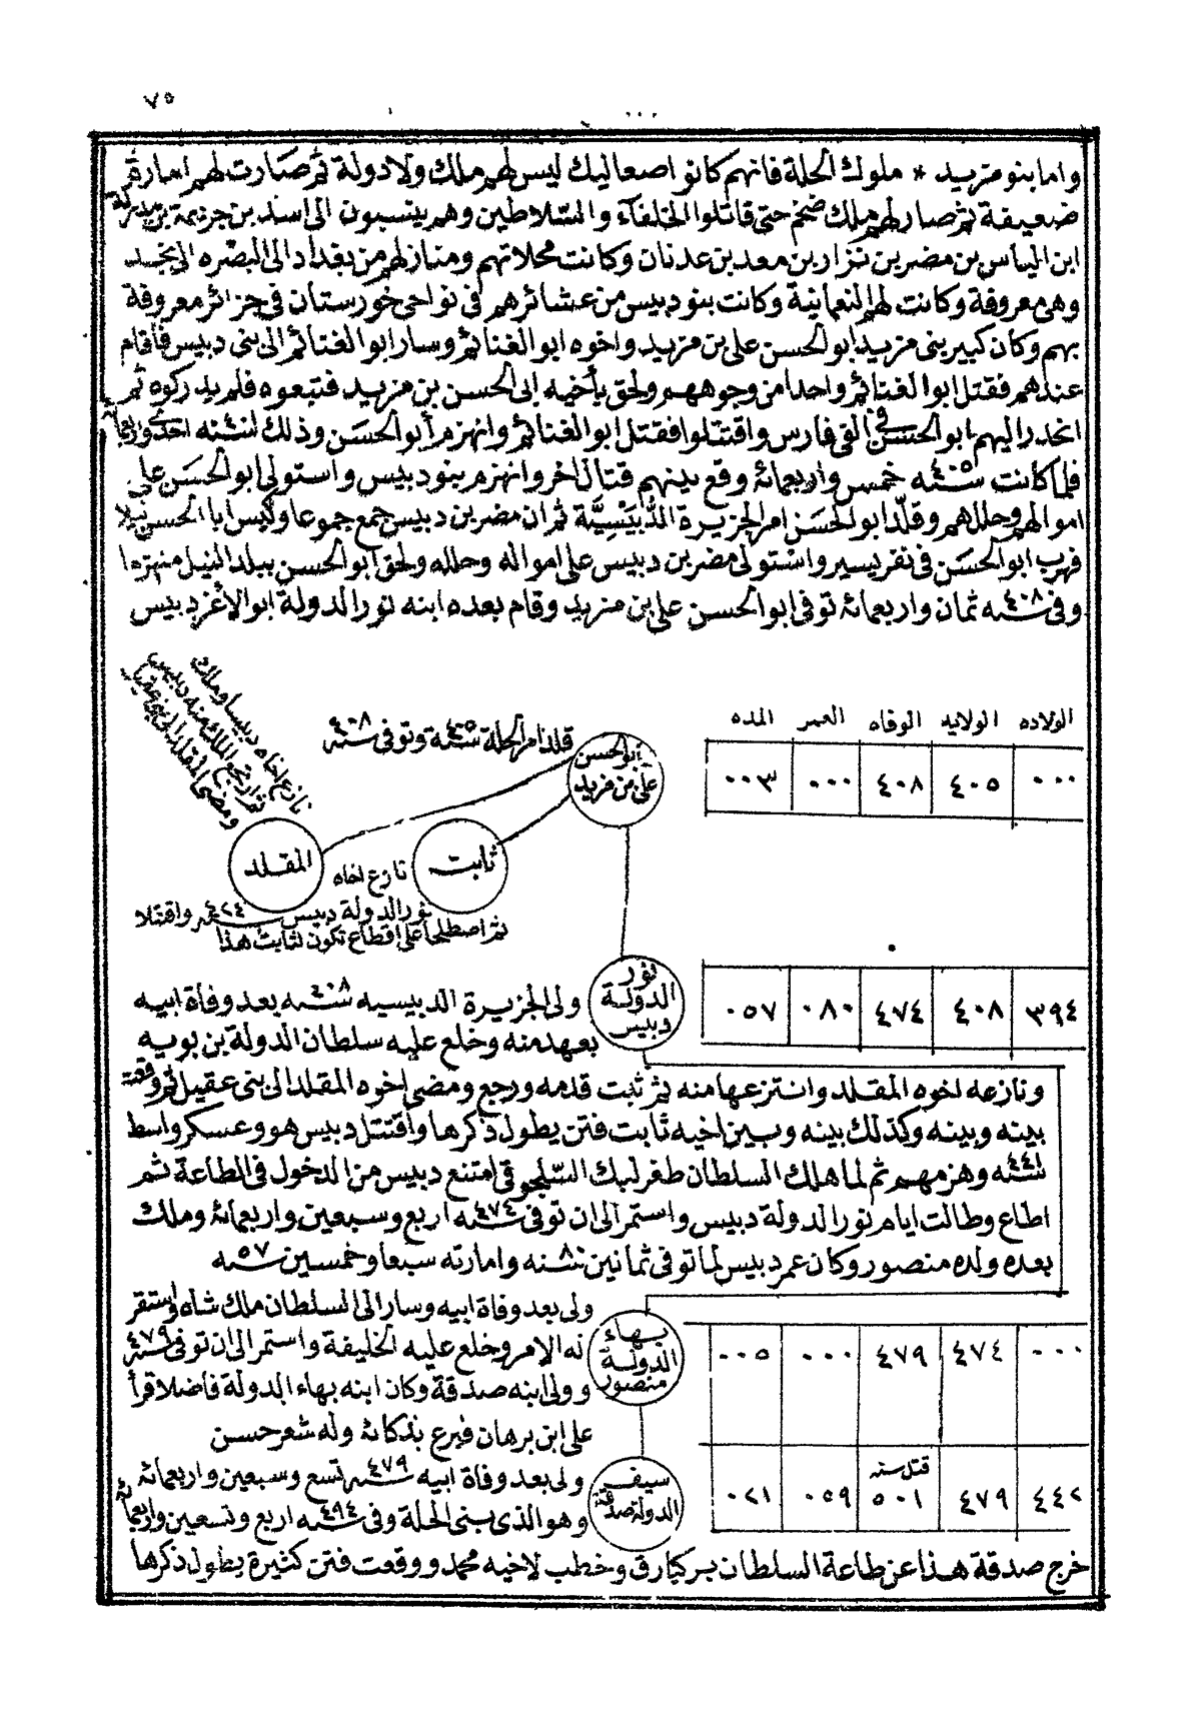 ٧٥
واما بنو مزيد * ملوك الحلة فانهم كانوا صعاليك ليس لهم ملك ولا دولة ثم صارت لهم امارة
ضعيفة ثم صار لهم ملك ضخم حتى قاتلوا الخلفاء والسلاطين وهم ينسبون الى اسد بن خزيمة بن مدركة
ابن الياس بن مضر بن نزار بن معد بن عدنان وكانت محلاتهم ومنازلهم من بغداد الى البصره الى نجد
وهى معروفة وكانت لهم النعمانية وكانت بنو دبيس من عشائرهم فى نواحى خورستان فى جزائر معروفة
بهم وكان كبير بنى مزيد ابو الحسن على بن مزيد واخوه ابو الغنائم وسار ابو الغنائم الى بنى دبيس فأقام
عندهم فقتل ابو الغنائم واحدا من وجوههم ولحق بأخيه ابى الحسن بن مزيد فتبعوه فلم يدركوه ثم
انحدر اليهم ابو الحسن فى القى فارس واقتتلوا فقتل ابو الغنائم وانهزم أبو الحسن وذلك لسنه احدى واربعمائة
فلما كانت سنه ٤٠٥ خمس واربعمائة وقع بينهم قتال اخر وانهزم بنو دبيس واستولى ابو الحسن على
اموالهم وحللهم وقلد ابو الحسن امر الجزيرة الدبيسية ثم ان مضر بن دبيس جمع جموعا وكبس ابا الحسن ليلا
فهرب ابو الحسن فى نفر يسير واستولى مضر بن دبيس على امواله وحلله ولحق ابو الحسن ببلد النيل منهزما
وفى سنه ٤٠٨ ثمان واربعمائة توفى ابو الحسن على بن مزيد وقام بعده ابنه نور الدولة ابو الأغر دبيس
الولاده الولايه الوفاه العمر المده
٠٠٠ ٤٠٥ ٤٠٨ ٠٠٠ ٠٠٣
أبو الحسن
على بن مزيد
قلد امر الحلة سنة ٤٠٥ وتوفى سنه ٤٠٨
ثابت
نازع اخاه
نور الدولة دبيس سنه ٤٢٤ واقتتلا
ثم اصطلحا على اقطاع تكون لثابت هذا
المقلد
نازع اخاه دبيسا وملك
ثم ارتجع الملك منه دبيس
ومضى المقلد الى بنى عقيل
٣٩٤ ٤٠٨ ٤٧٤ ٠٨٠ ٠٥٧
نور
الدولة
دبيس
ولى الجزيرة الدبيسيه سنه ٤٠٨ بعد وفاة ابيه
بعهد منه وخلع عليه سلطان الدولة بن بويه
ونازعه اخوه المقلد وانتزعها منه ثم ثبت قدمه ورجع ومضى اخوه المقلد الى بنى عقيل ثم وقعت
بينه وبينه وكذلك بينه وبين اخيه ثابت فتن يطول ذكرها واقتتل دبيس هو وعسكر واسط
سنه ٤٤١ وهزمهم ثم لما هلك السلطان طغرلبك السلجوقى امتنع دبيس من الدخول فى الطاعة ثم
اطاع وطالت ايام نور الدولة دبيس واستمر الى ان توفى سنه ٤٧٤ اربع وسبعين واربعمائة وملك
بعده ولده منصور وكان عمر دبيس لما توفى ثمانين ٨٠ سنه وامارته سبعا وخمسين ٥٧ سنه
٠٠٠ ٤٧٤ ٤٧٩ ٠٠٠ ٠٠٥
بهاء
الدولة
منصور
ولى بعد وفاة ابيه وسار الى السلطان ملك شاه واستقر
له الامر وخلع عليه الخليفة واستمر الى ان توفى سنه ٤٧٩
وولى ابنه صدقة وكان ابنه بهاء الدولة فاضلا قرأ
على ابن برهان فبرع بذكائه وله شعر حسن
قتل سنه
٤٤٢ ٤٧٩ ٥٠١ ٠٥٩ ٠٢١
سيف
الدولة صدقة
ولى بعد وفاة ابيه سنه ٤٧٩ تسع وسبعين واربعمائة
وهو الذى بنى الحلة وفى سنه ٤٩٤ اربع وتسعين واربعمائة
خرج صدقة هذا عن طاعة السلطان بركيارق وخطب لاخيه محمد ووقعت فتن كثيرة يطول ذكرها